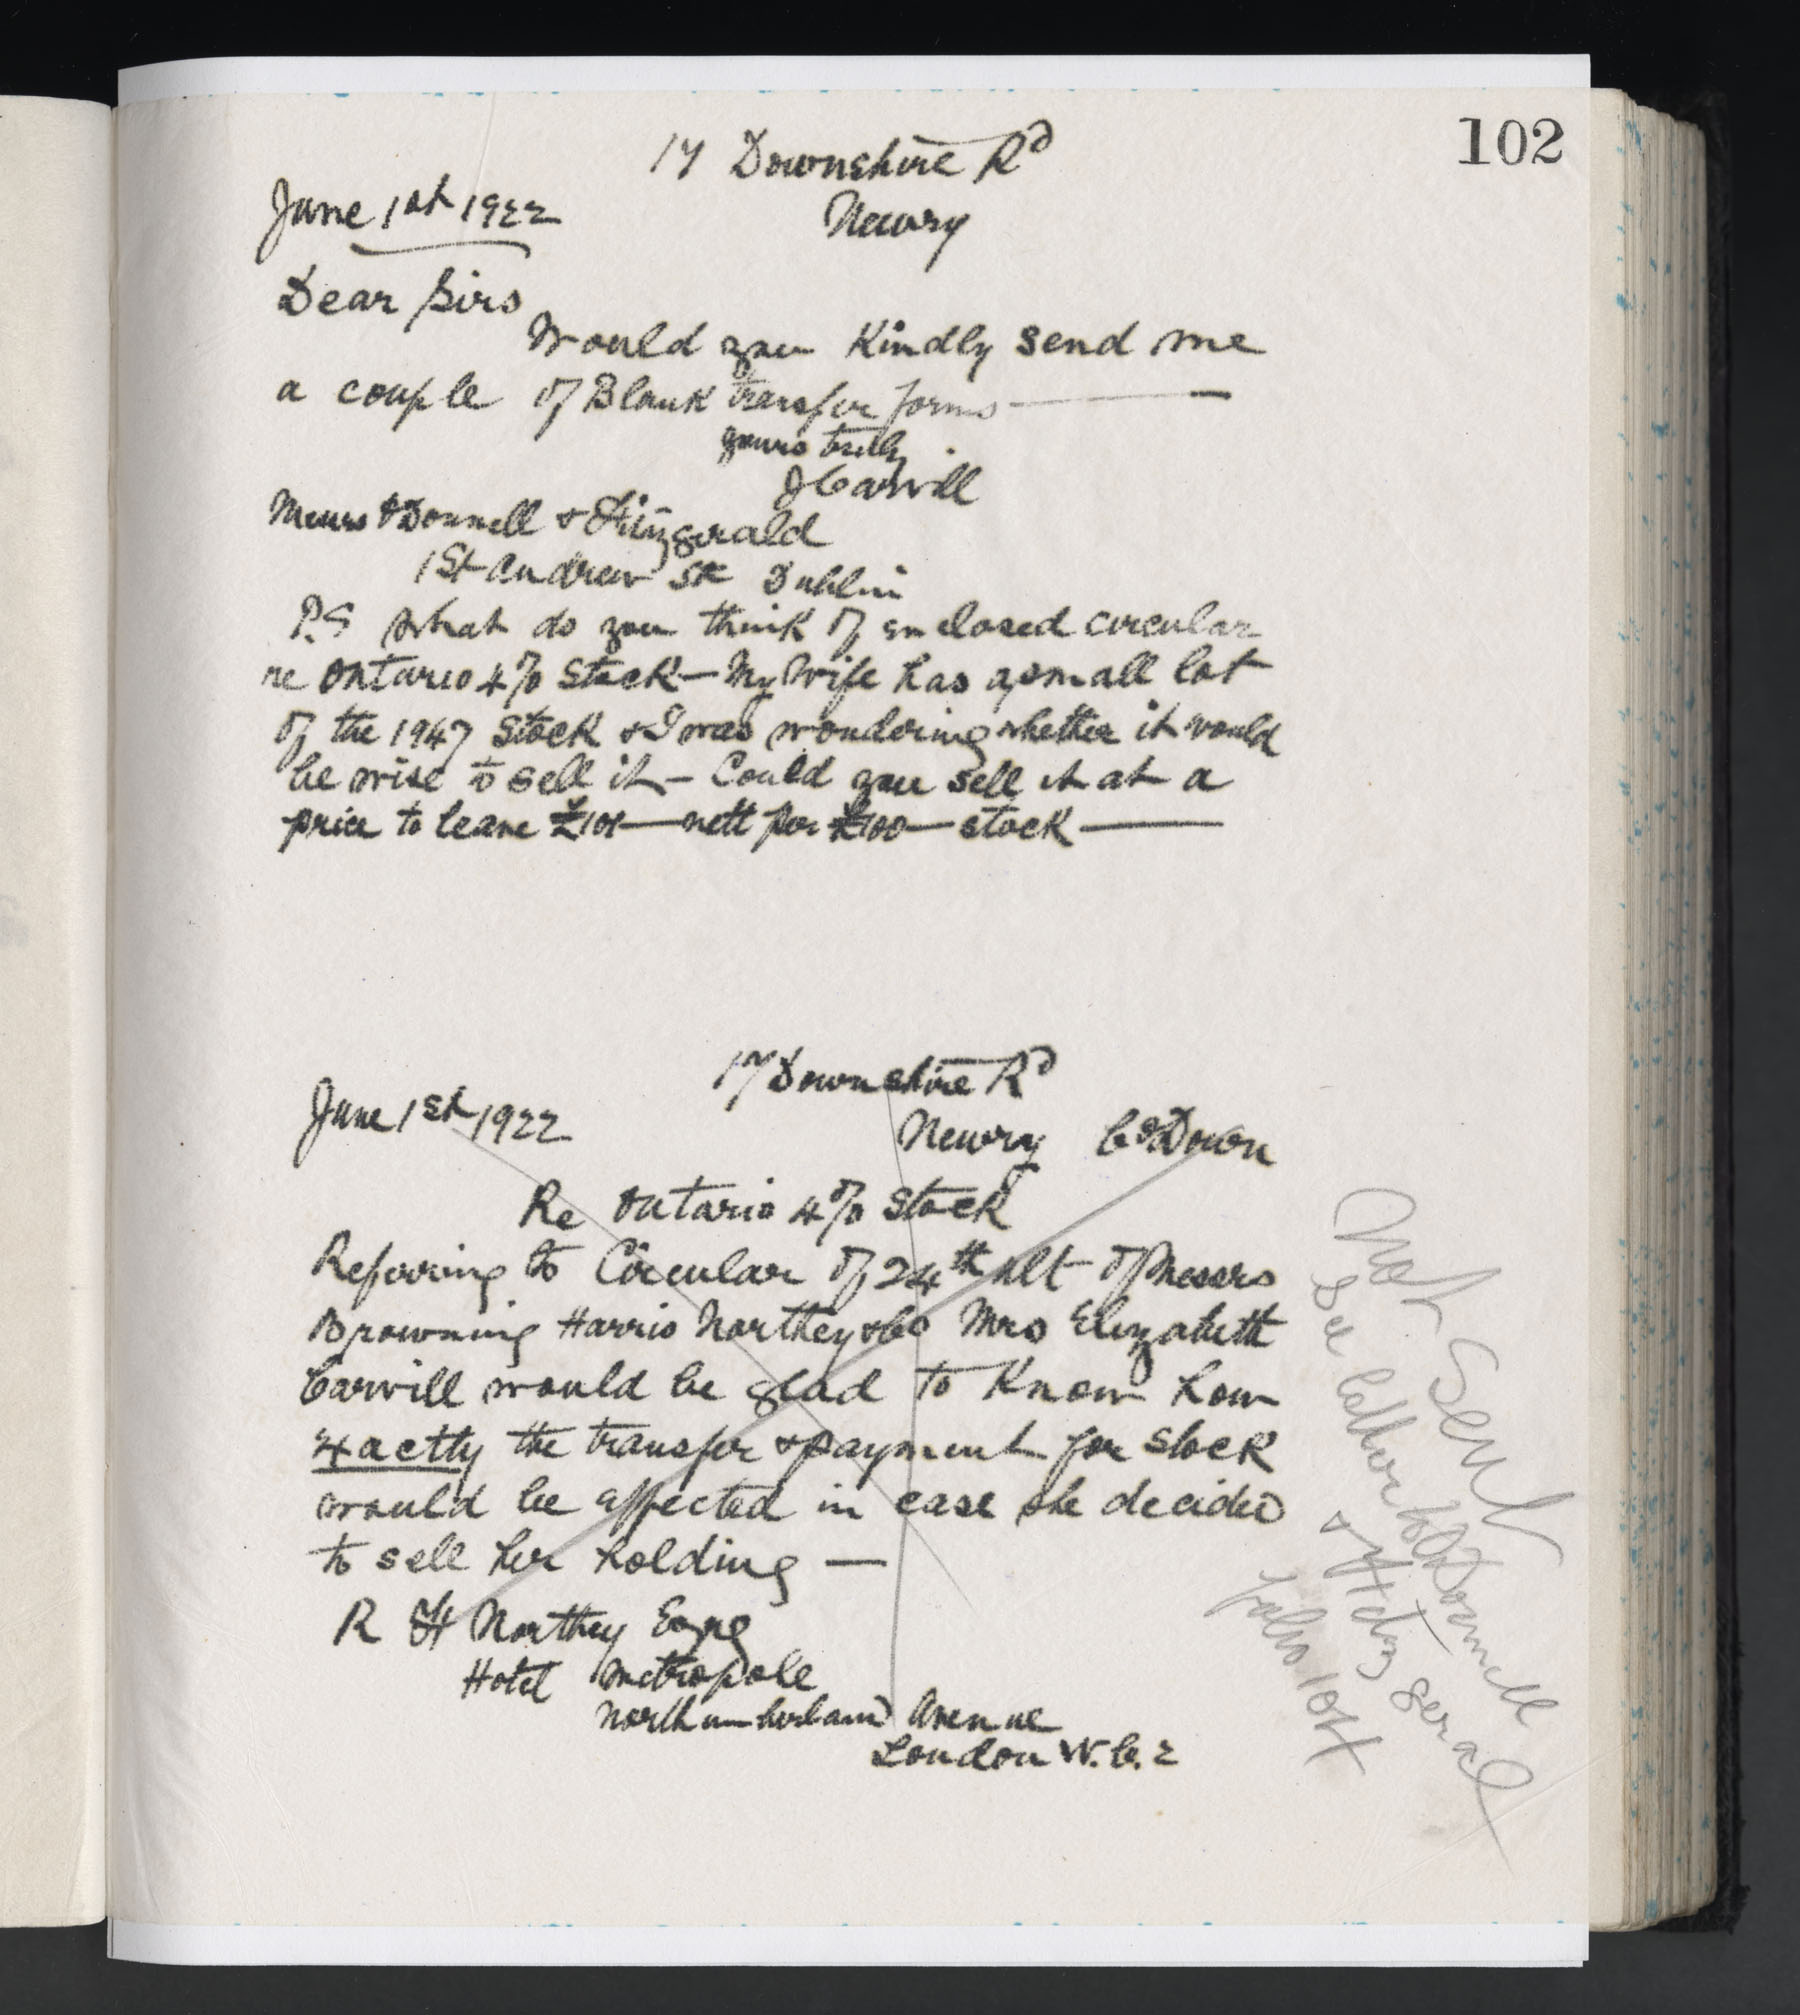 102
17 Downshire Rd
June 1st 1922
Newry
Dear Sirs
Would you Kindly send me
a couple of Blank transfer forms —
yours truly
J Carvill
Messrs O'Donnell & Fitzgerald
1 St Andrew St Dublin
P.S what do you think of enclosed circular
re Ontario 4% Stock — My Wife has a small lot
of the 1947 Stock & I was wondering whether it would
be wise to sell it — Could you sell it at a
price to leave £101 — nett per £100 — stock —
17 Downshire Rd
June 1st 1922
Newry Co Down
Re Ontario 4% Stock
Referring to Circular of 24th ult of Messrs
Browning Harris Northey & Co Mrs Elizabeth
Carvill would be glad to Know how
exactly the transfer & payment for stock
would be effected in case she decides
to sell her holding —
R H Northey Esqre
Hotel Metropole
Northumberland Avenue
London W.C.2
Not Sent
See letter to O'Donnell
& Fitzgerald
folio 104